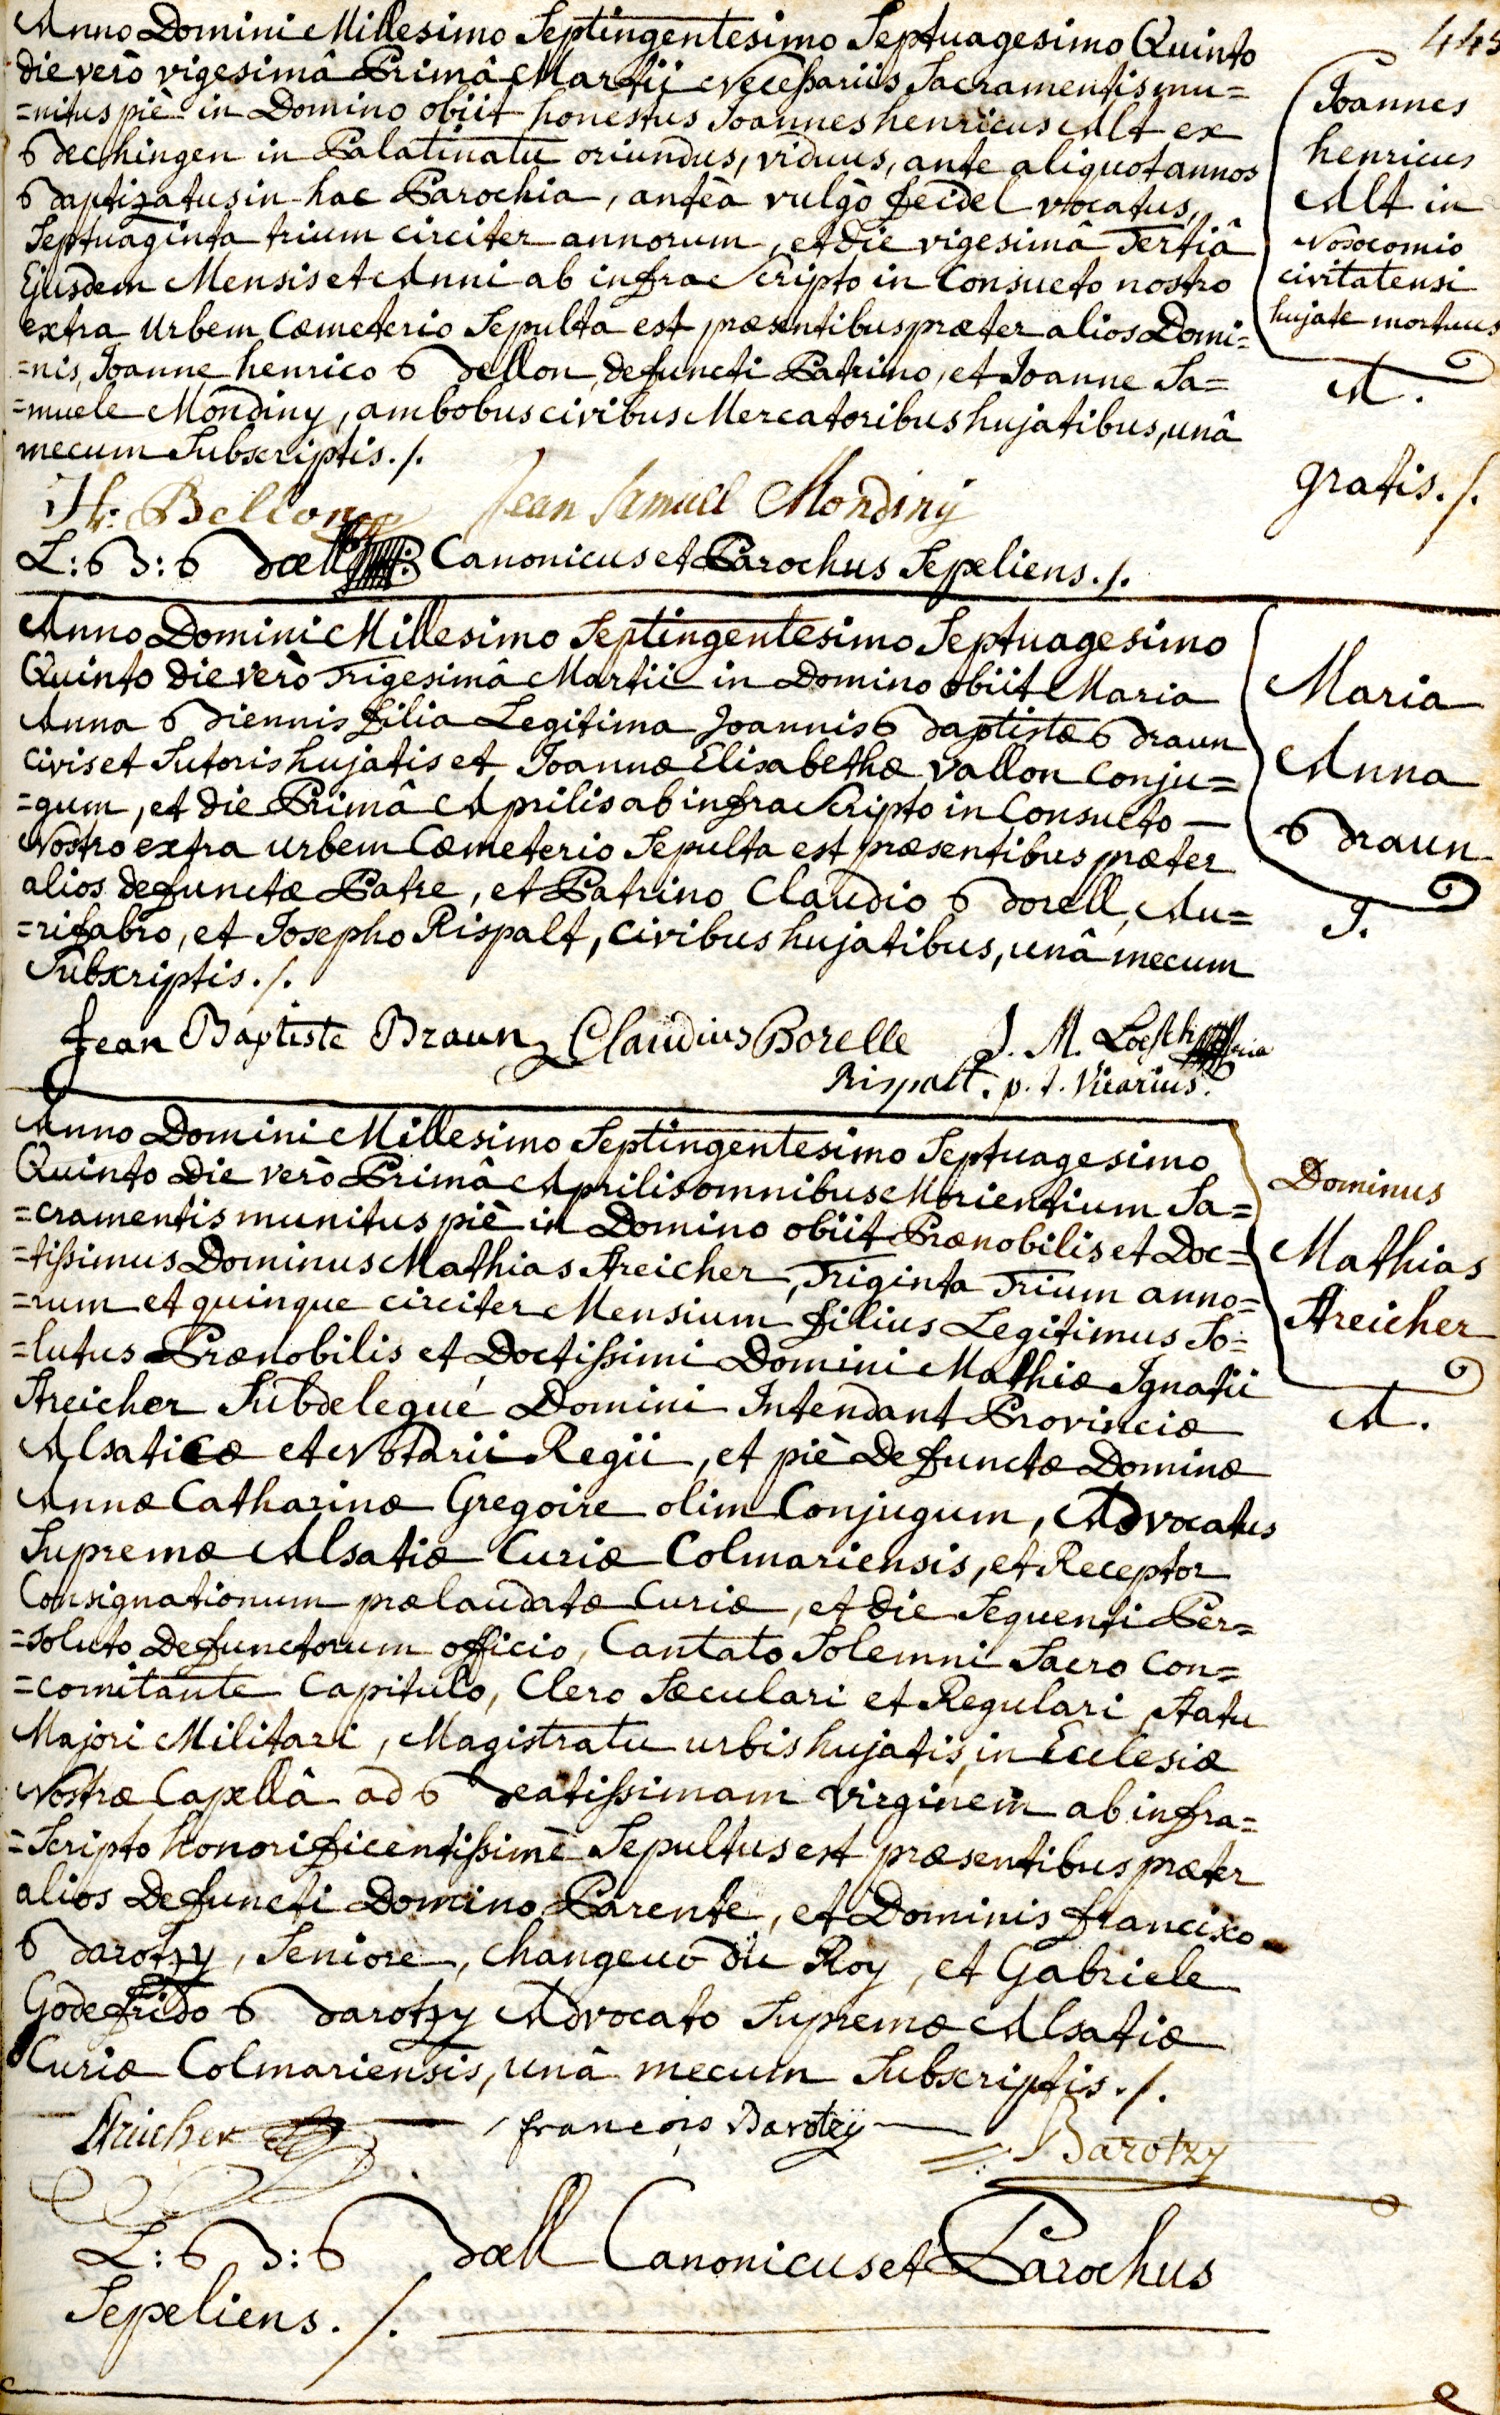 443
Anno Domini Millesimo Septingentesimo Septuagesimo Quinto
die verò vigesimâ Primâ Martii Necessariis Sacramentis mu=
=nitus piè in Domino obiit honestus Joannes henricus Alt ex
Bechingen in Palatinatu oriundus, viduus, ante aliquot annos
Baptizatus in hac Parochia, anteà vulgò feidel vocatus,
Septuaginta trium circiter annorum, et die vigesimâ Tertiâ
Ejusdem Mensis et Anni ab infra Scripto in Consueto nostro
extra Urbem Cœmeterio Sepulta est præsentibus præter alios Domi=
=nis, Joanne henrico Bellon, defuncti Patrino, et Joanne Sa=
=muele Mondiny, ambobus civibus Mercatoribus hujatibus, unâ
mecum Subscriptis ./.
Joannes
henricus
Alt in
Nosocomio
civitatensi
hujate mortuus
A.
gratis ./.
J H: Bellon Jean Samuel Mondiny
L: B: Bœll Canonicus et Parochus Sepeliens ./.
Anno Domini Millesimo Septingentesimo Septuagesimo
Quinto die verò Trigesimâ Martii in Domino obiit Maria
Anna Biennis filia Legitima Joannis Baptistæ Braun
civis et Sutoris hujatis et Joannæ Elisabethæ vallon conju=
=gum, et die Primâ Aprilis ab infra Scripto in Consueto
Nostro extra urbem Cœmeterio Sepulta est præsentibus præter
alios defunctæ Patre, et Patrino Claudio Borell, Au=
=rifabro, et Josepho Rispalt, civibus hujatibus, unâ mecum
Subscriptis ./.
Maria
Anna
Braun
J.
Jean Baptiste Braun Claudius Borelle J. M. Loesch
Rispalt. p. t. Vicarius.
Anno Domini Millesimo Septingentesimo Septuagesimo
Quinto die verò Primâ Aprilis omnibus Morientium Sa=
=cramentis munitus piè in Domino obiit Prænobilis et Doc=
=tissimus Dominus Mathias Streicher, Triginta Trium anno=
=rum et quinque circiter Mensium filius Legitimus So=
=lutus Prænobilis et Doctissimi Domini Mathiæ Ignatii
Streicher Subdelegué Domini Intendant Provinciæ
Alsaticæ et Notarii Regii, et piè Defunctæ Dominæ
Annæ Catharinæ Gregoire olim Conjugum, Advocatus
Supremæ Alsatiæ Curiæ Colmariensis, et Receptor
Consignationum prælaudatæ Curiæ, et die Sequenti Per=
=soluto Defunctorum officio, Cantato Solemni Sacro Con=
=comitante Capitulo, Clero Sæculari et Regulari, Statu
Majori Militari, Magistratu urbis hujatis, in Ecclesiæ
Nostræ Capellâ ad Beatissimam Virginem ab infra=
=Scripto honorificentissimè Sepultus est præsentibus præter
alios Defuncti Domino Parente, et Dominis francisco
Barotzy, Seniore, changeur du Roy, et Gabriele
Godefrido Barotzy Advocato Supremæ Alsatiæ
Curiæ Colmariensis, unâ mecum Subscriptis ./.
Dominus
Mathias
Streicher
A.
Streicher françois Barotzy Barotzy
L: B: Bœll Canonicus et Parochus
Sepeliens ./.